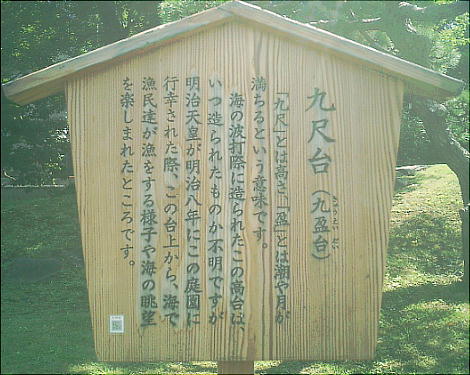 九尺台（九盈台）
きゅうえいだい
「九尺」とは高さ、「盈」とは潮や月が
満ちるという意味です。
海の波打際に造られたこの高台は、
いつ造られたものか不明ですが
明治天皇が明治八年にこの庭園に
行幸された際、この台上から、海で
漁民達が漁をする様子や海の眺望
を楽しまれたところです。